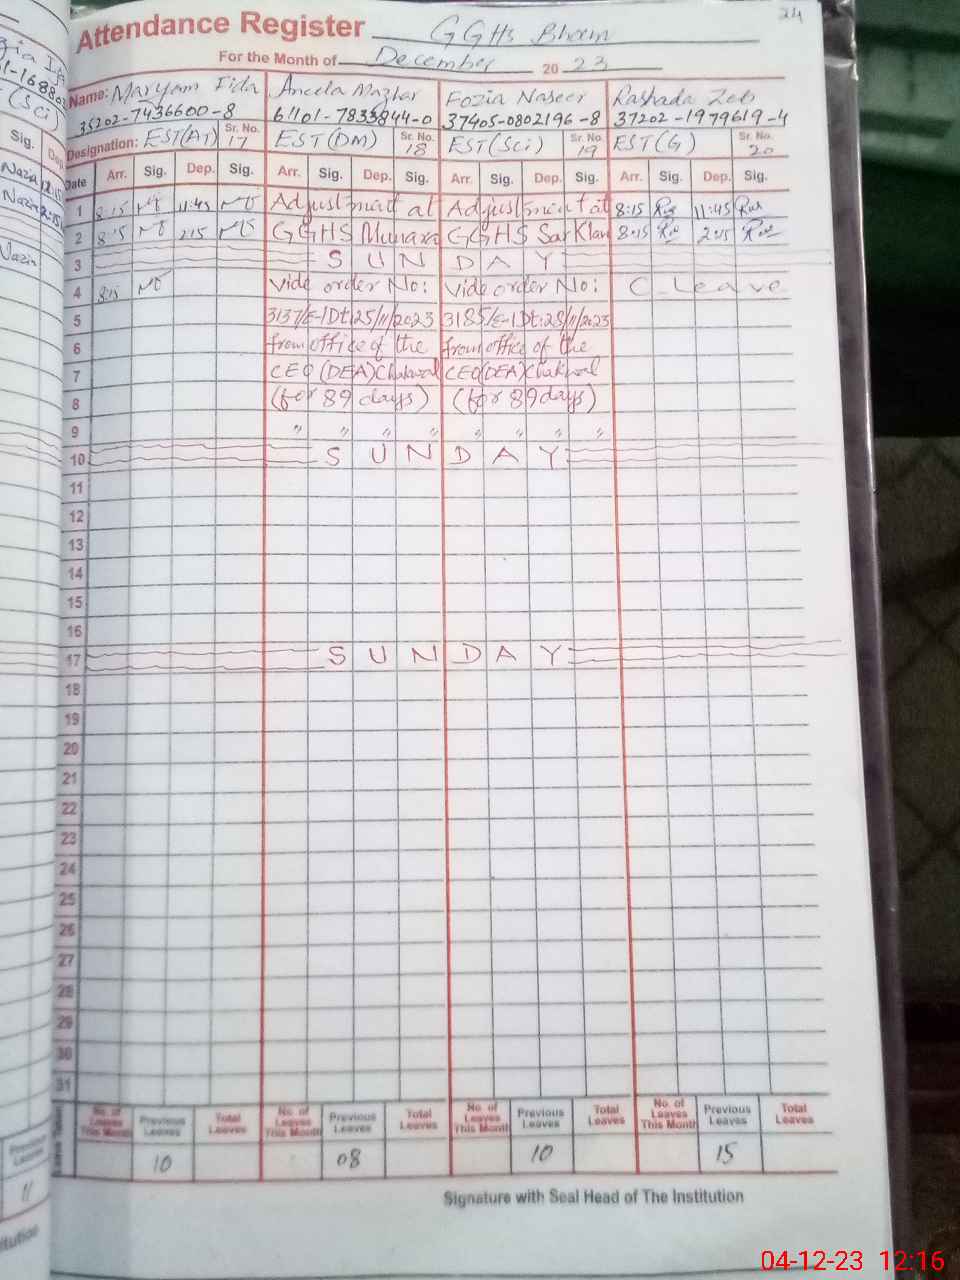 24
Attendance Register GGHS Bheem
For the Month of December 2023
Name: Maryam Fida Aneela Mazhar Fozia Naseer Rashada Zeb
35202-7436600-8 61101-7833844-0 37405-0802196-8 37202-1979619-4
Designation: EST(AT) Sr. No. 17 EST(DM) Sr. No. 18 EST(Sci) Sr. No. 19 EST(G) Sr. No. 20
Date Arr. Sig. Dep. Sig. Arr. Sig. Dep. Sig. Arr. Sig. Dep. Sig. Arr. Sig. Dep. Sig.
1 8:15 11:45 Adjustment at Adjustment at 8:15 11:45
2 8:15 2:15 GGHS Munara GGHS Sarklan 8:15 2:15
3 SUNDAY
4 8:15 Vide order No: Vide order No: C. Leave
5 3137/E-I Dt:25/11/2023 3185/E-I Dt:28/11/2023
6 from office of the from office of the
7 CEO (DEA) Chakwal CEO (DEA) Chakwal
8 (for 89 days) (for 89 days)
9 " " " " " " " "
10 SUNDAY
11
12
13
14
15
16
17 SUNDAY
18
19
20
21
22
23
24
25
26
27
28
29
30
31
No. of Leaves This Month Previous Leaves Total Leaves No. of Leaves This Month Previous Leaves Total Leaves No. of Leaves This Month Previous Leaves Total Leaves No. of Leaves This Month Previous Leaves Total Leaves
10 08 10 15
Signature with Seal Head of The Institution
04-12-23 12:16